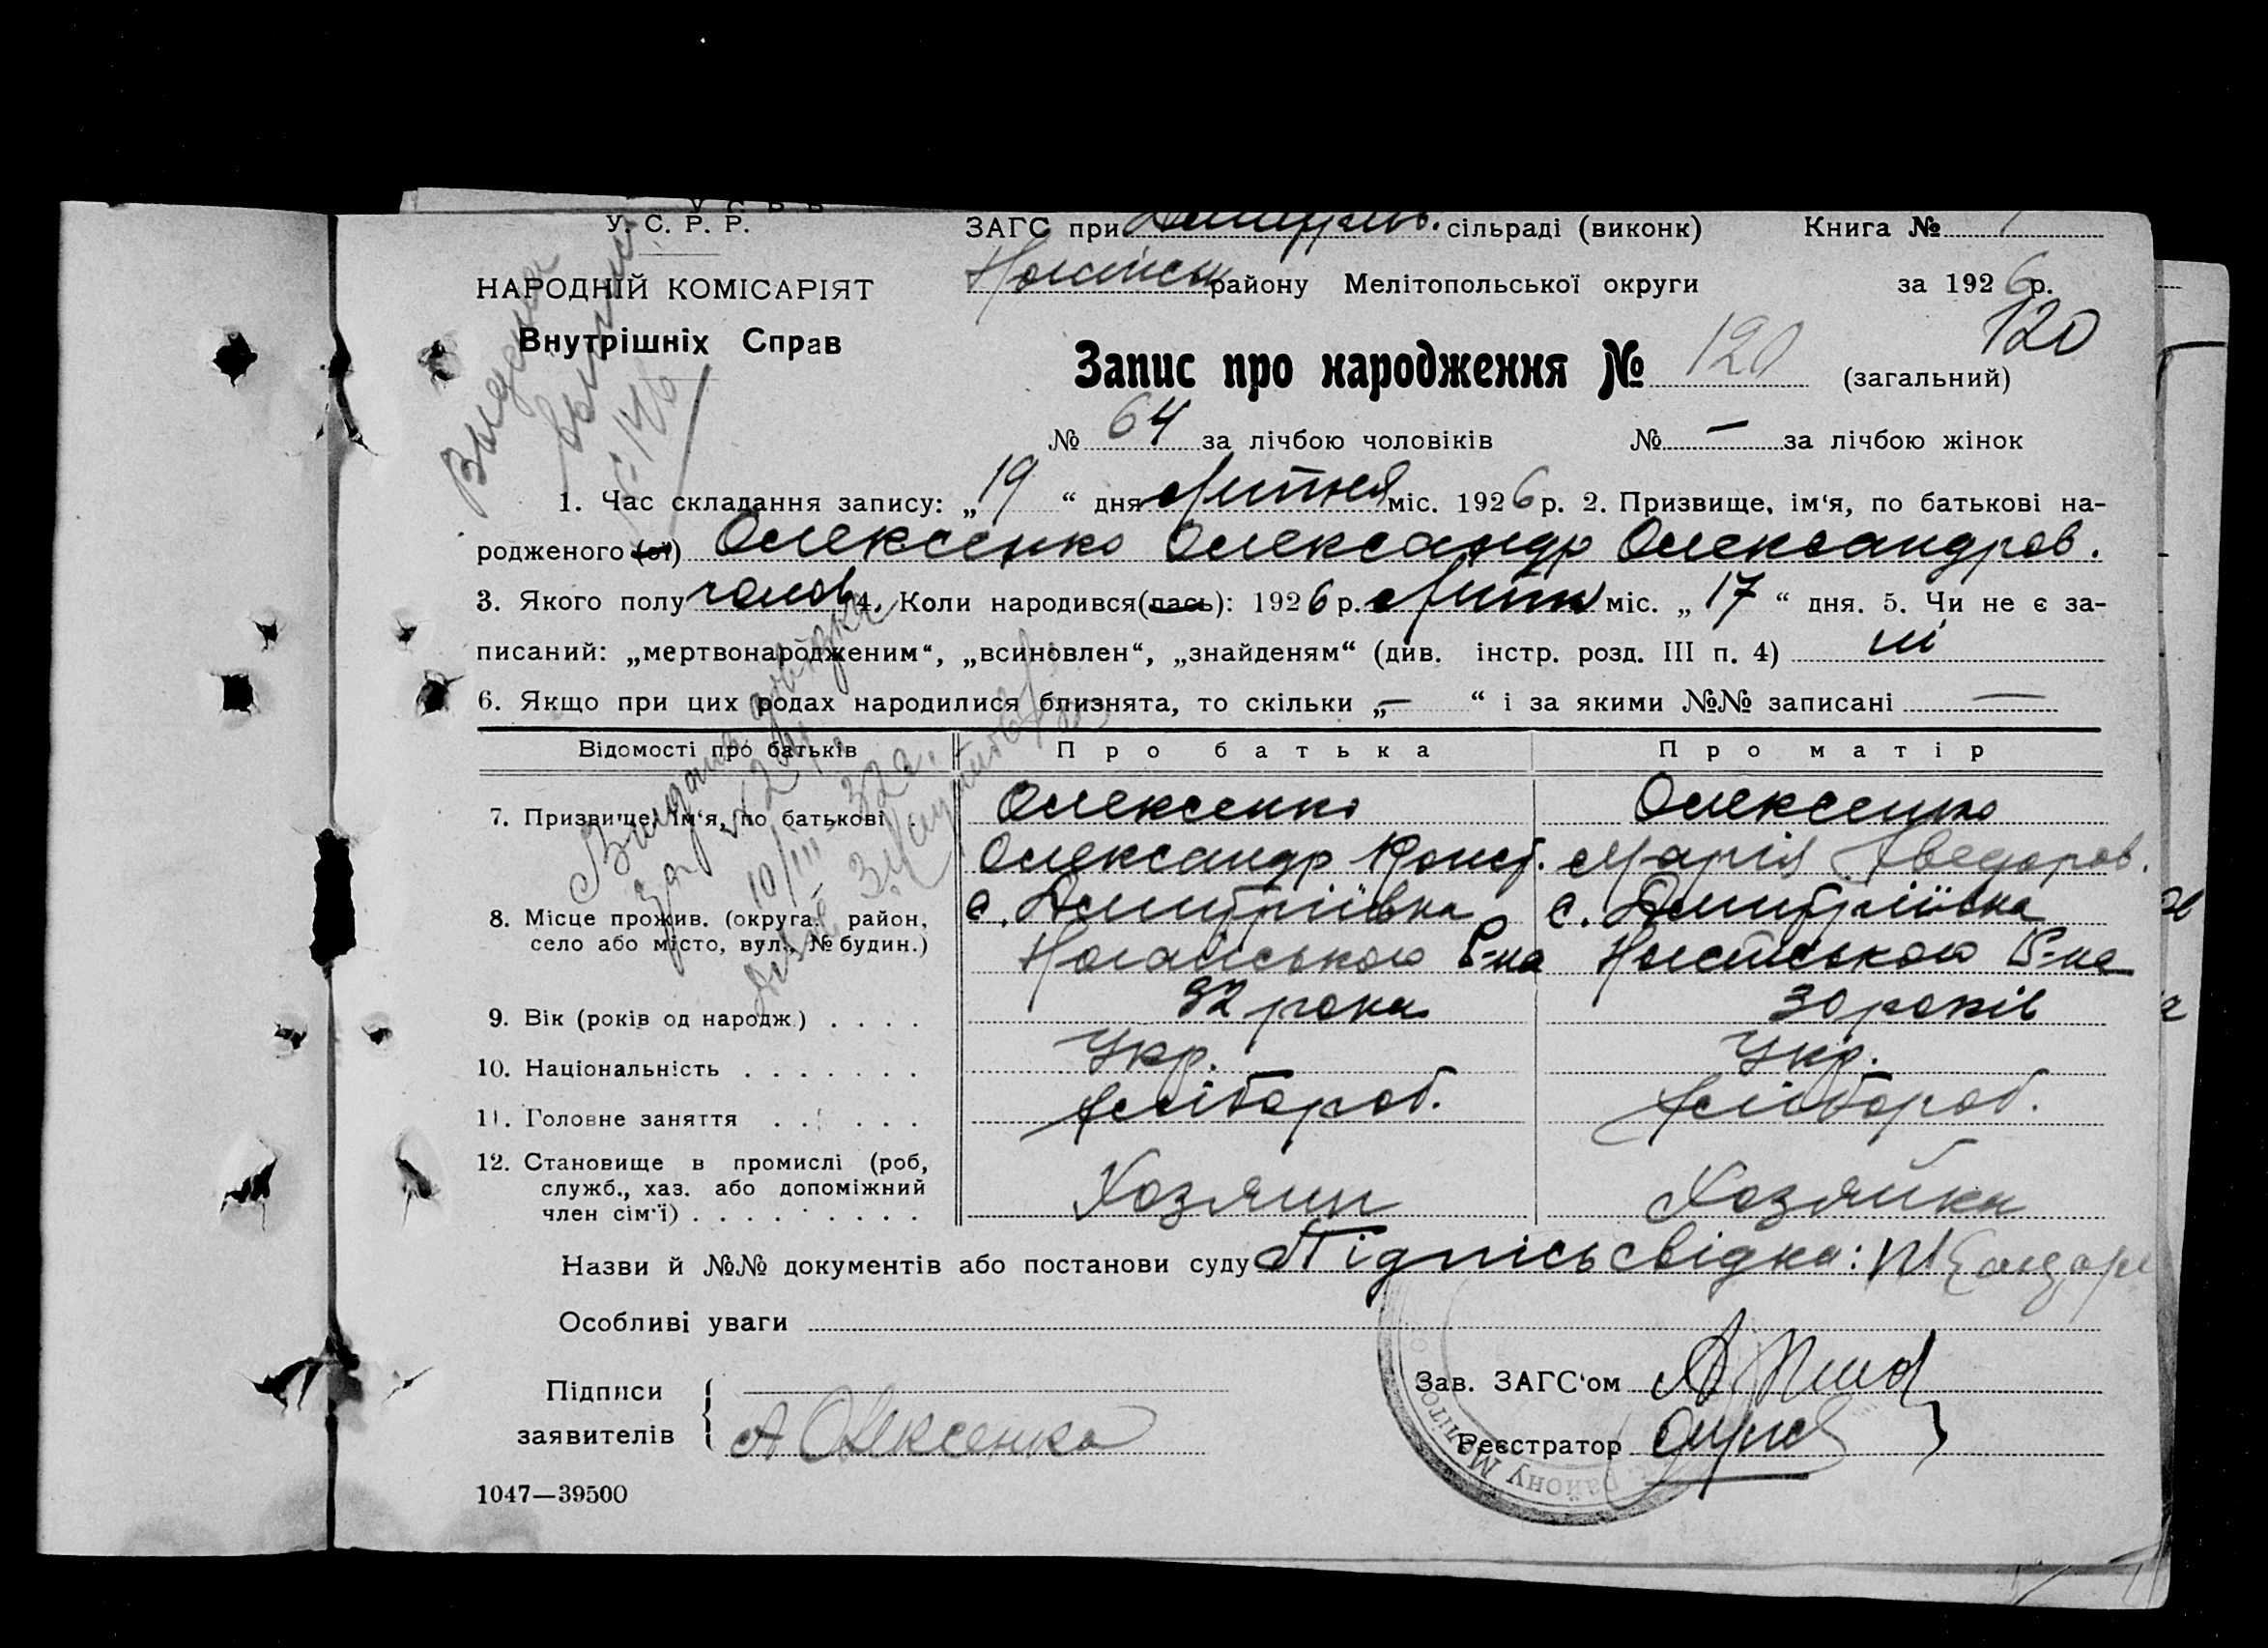 У. С. Р. Р.
ЗАГС при Дмитрів. сільраді (виконк) Книга №
НАРОДНІЙ КОМІСАРІЯТ
Ногайськ району Мелітопольської округи за 1926 р.
Внутрішніх Справ
120
Запис про народження № 120 (загальний)
№ 64 за лічбою чоловіків № — за лічбою жінок
1. Час складання запису: „19“ дня Литня міс. 1926 р. 2. Призвище, ім‘я, по батькові на-
родженого (ої) Олексенко Олександр Олександров.
3. Якого полу чолов 4. Коли народився(лась): 1926 р. Литн міс. „17“ дня. 5. Чи не є за-
писаний: „мертвонародженим“, „всиновлен“, „знайденям“ (див. інстр. розд. III п. 4) ні
6. Якщо при цих родах народилися близнята, то скільки „—“ і за якими №№ записані —
Відомості про батьків Про батька Про матір
7. Призвище, ім‘я, по батькові Олексенко Олексенко
Олександр Конст. Марія Хведоров.
8. Місце прожив. (округа, район, с. Дмитріївка с. Дмитріївка
село або місто, вул., № будин.) Ногайського Р-на Ногайського Р-на
9. Вік (років од народж.) . . . . 32 рока 30 років
10. Національність . . . . . . . Укр. Укр.
11. Головне заняття . . . . . . Хлібороб. Хлібороб.
12. Становище в промислі (роб,
служб., хаз. або допоміжний
член сім‘ї) . . . . . . . . . Хозяин Хозяйка
Назви й №№ документів або постанови суду Підпісь свідка:
Особливі уваги
Підписи
Зав. ЗАГС‘ом
заявителів А Олексенко
Реєстратор
1047—39500
Выдена
выпись
Видана довідка
10/III 32 р.
району Меліто